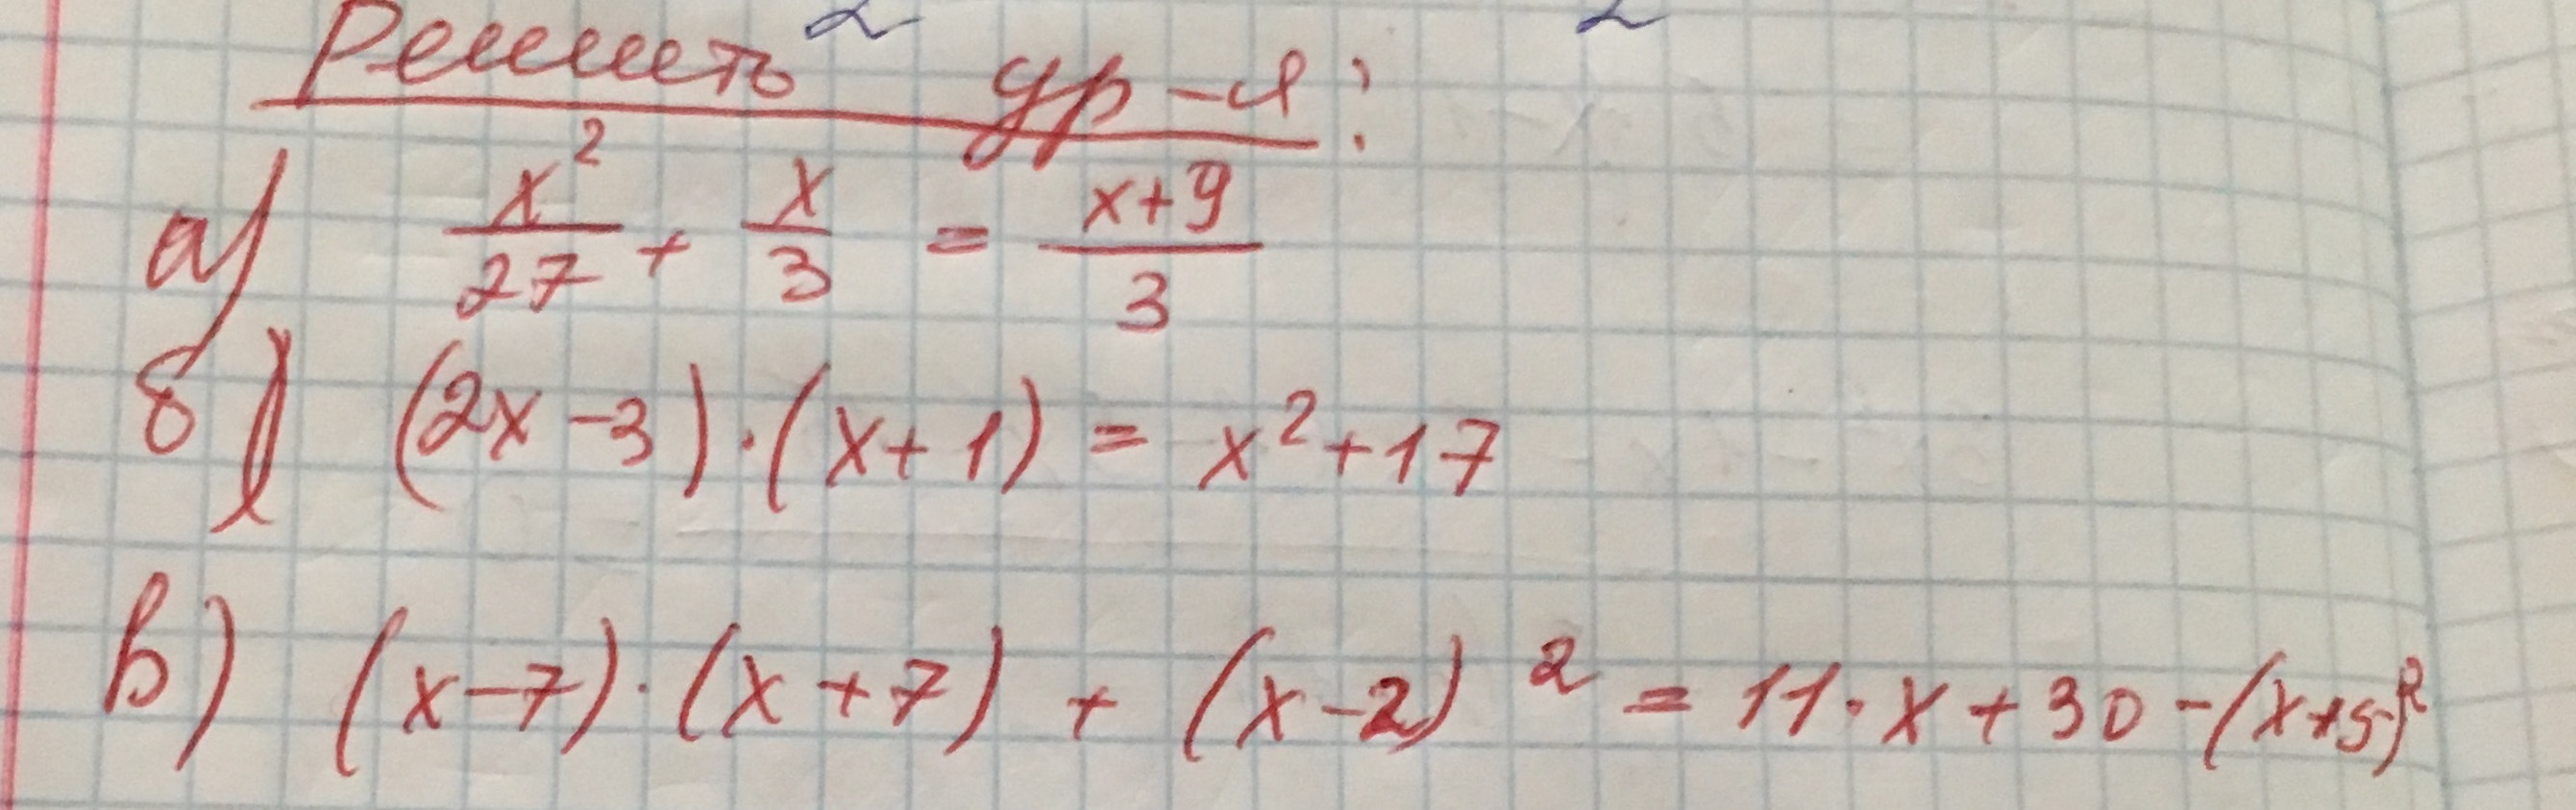 Решить ур-я:
а) x²/27 + x/3 = x+9/3
б) (2x-3)·(x+1) = x²+17
в) (x-7)·(x+7) + (x-2)² = 11·x+30-(x+5)²